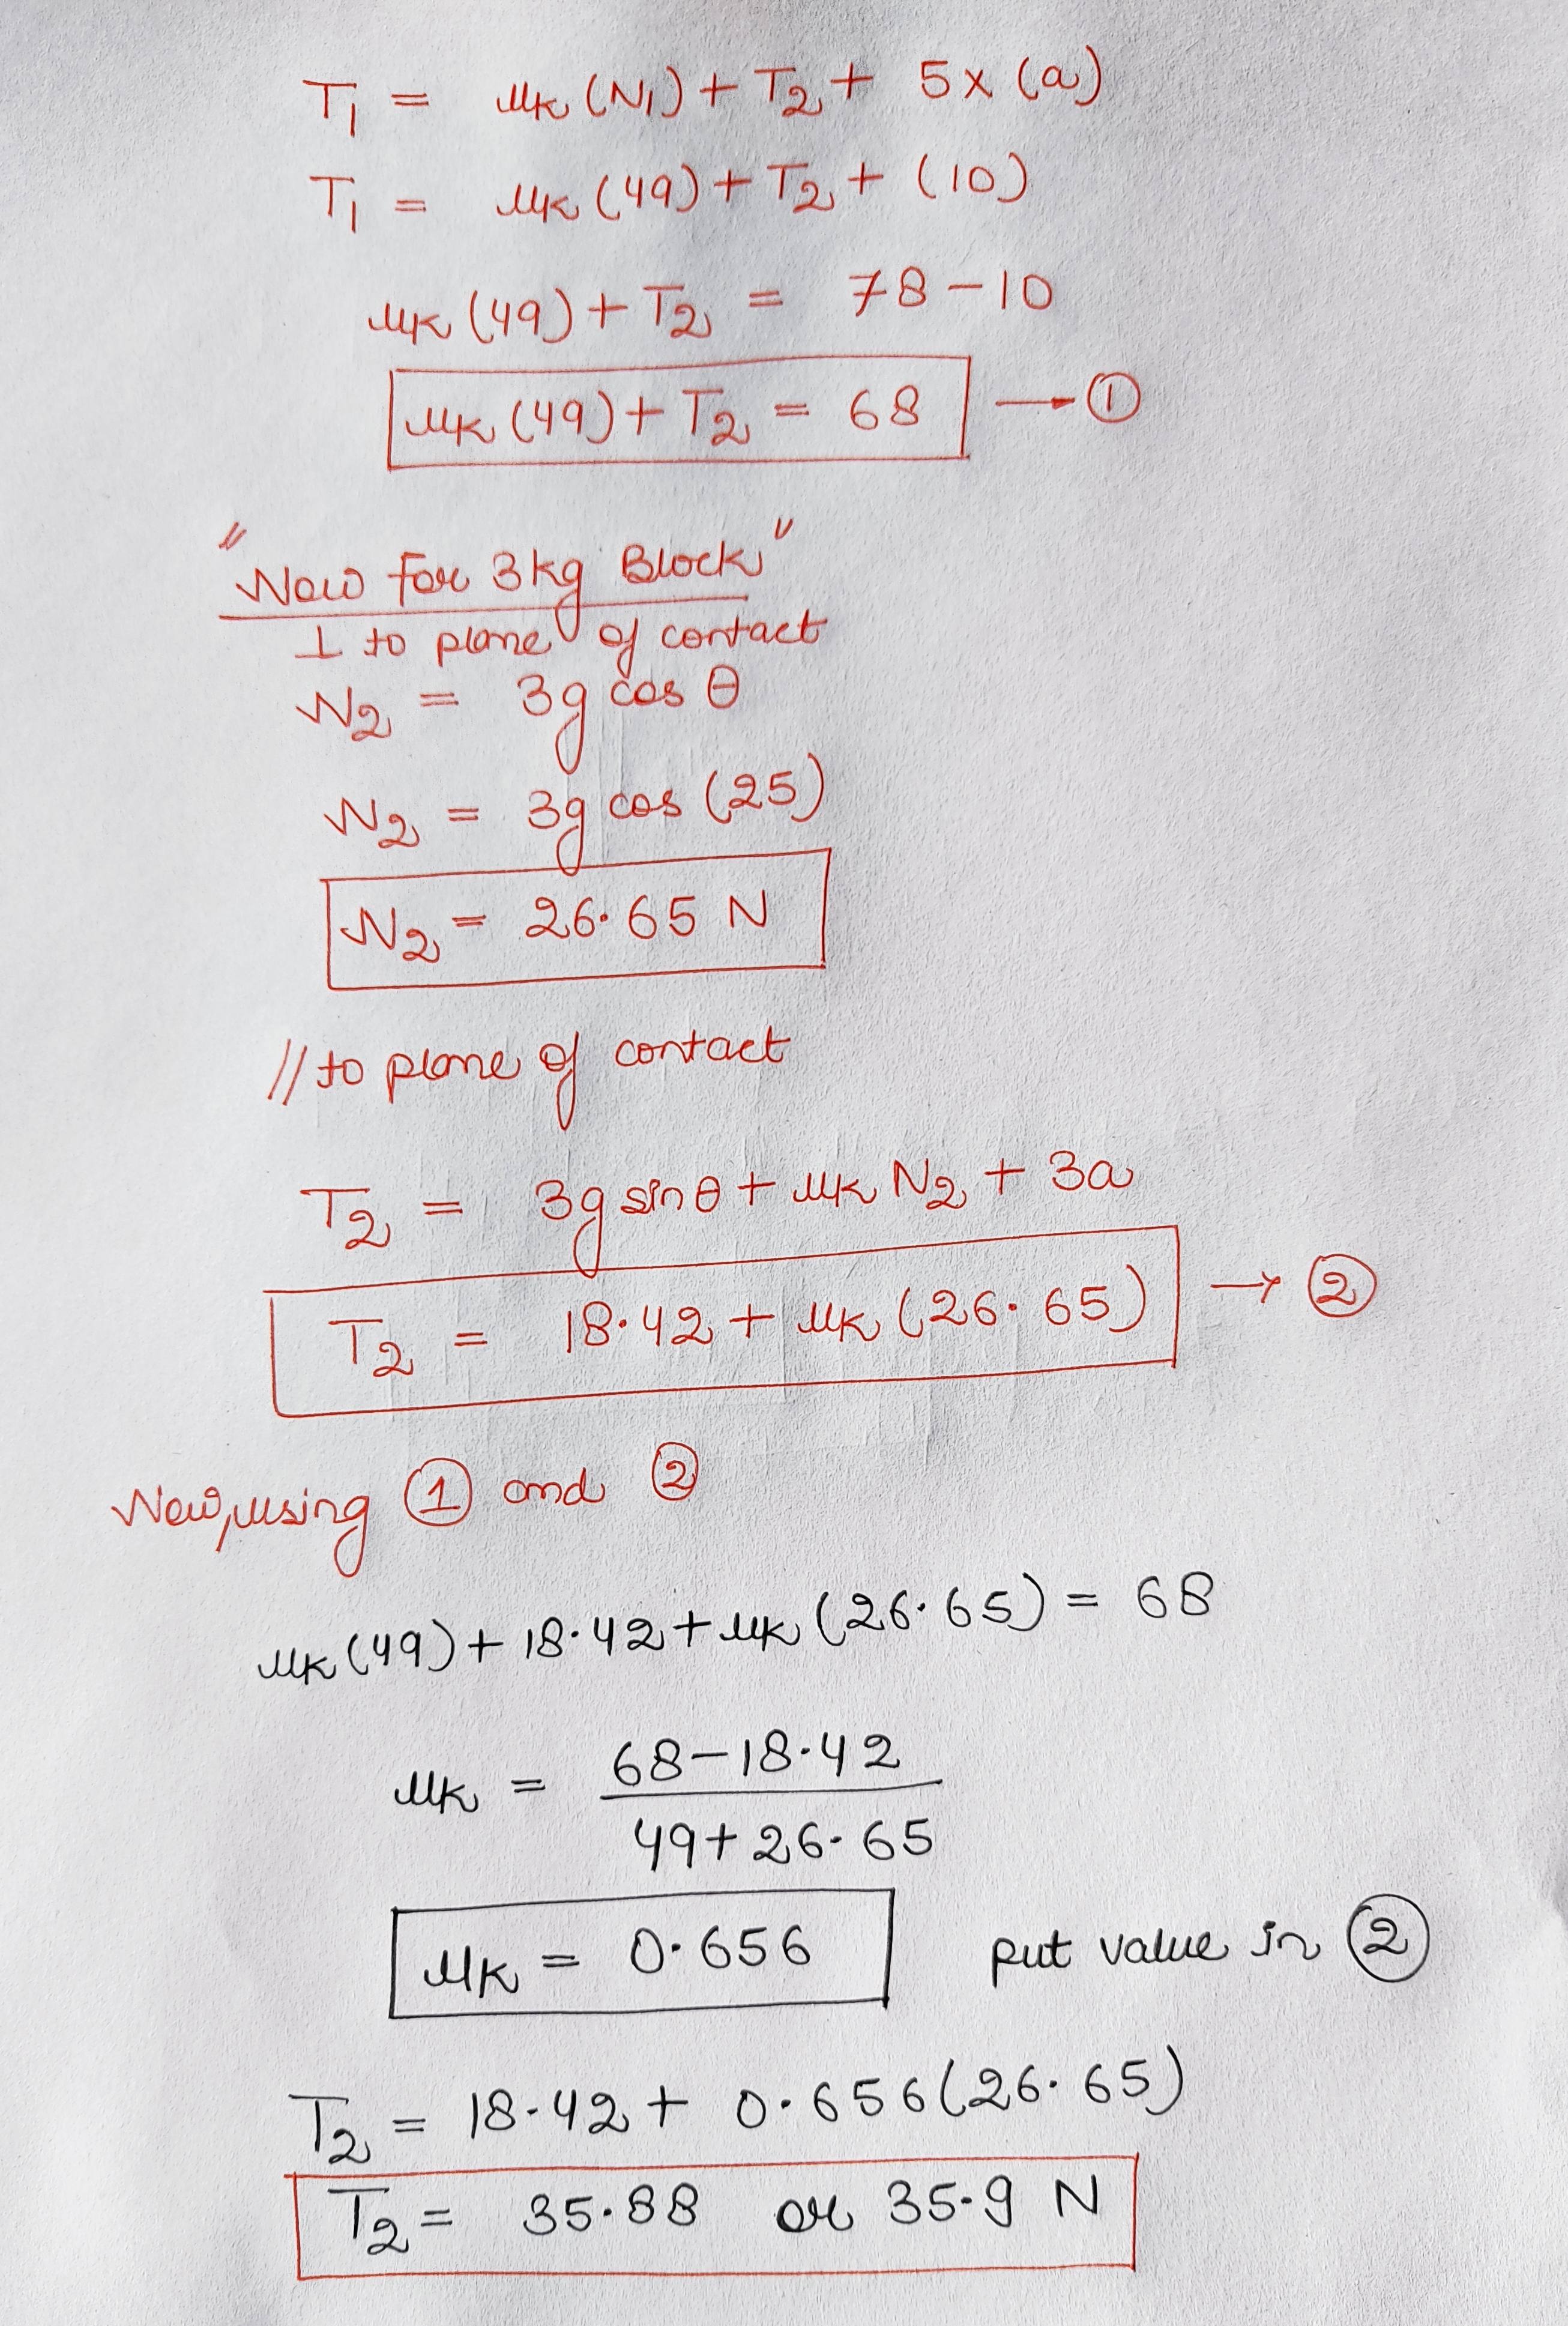 T₁ = μk (N₁) + T₂ + 5 × (a)
T₁ = μk (49) + T₂ + (10)
μk (49) + T₂ = 78 - 10
μk (49) + T₂ = 68 → ①
"Now for 3kg Block"
⊥ to plane of contact
N₂ = 3g cos θ
N₂ = 3g cos (25)
N₂ = 26.65 N
// to plane of contact
T₂ = 3g sin θ + μk N₂ + 3a
T₂ = 18.42 + μk (26.65) → ②
Now, using ① and ②
μk (49) + 18.42 + μk (26.65) = 68
μk = 68 - 18.42
49 + 26.65
μk = 0.656 put value in ②
T₂ = 18.42 + 0.656 (26.65)
T₂ = 35.88 or 35.9 N